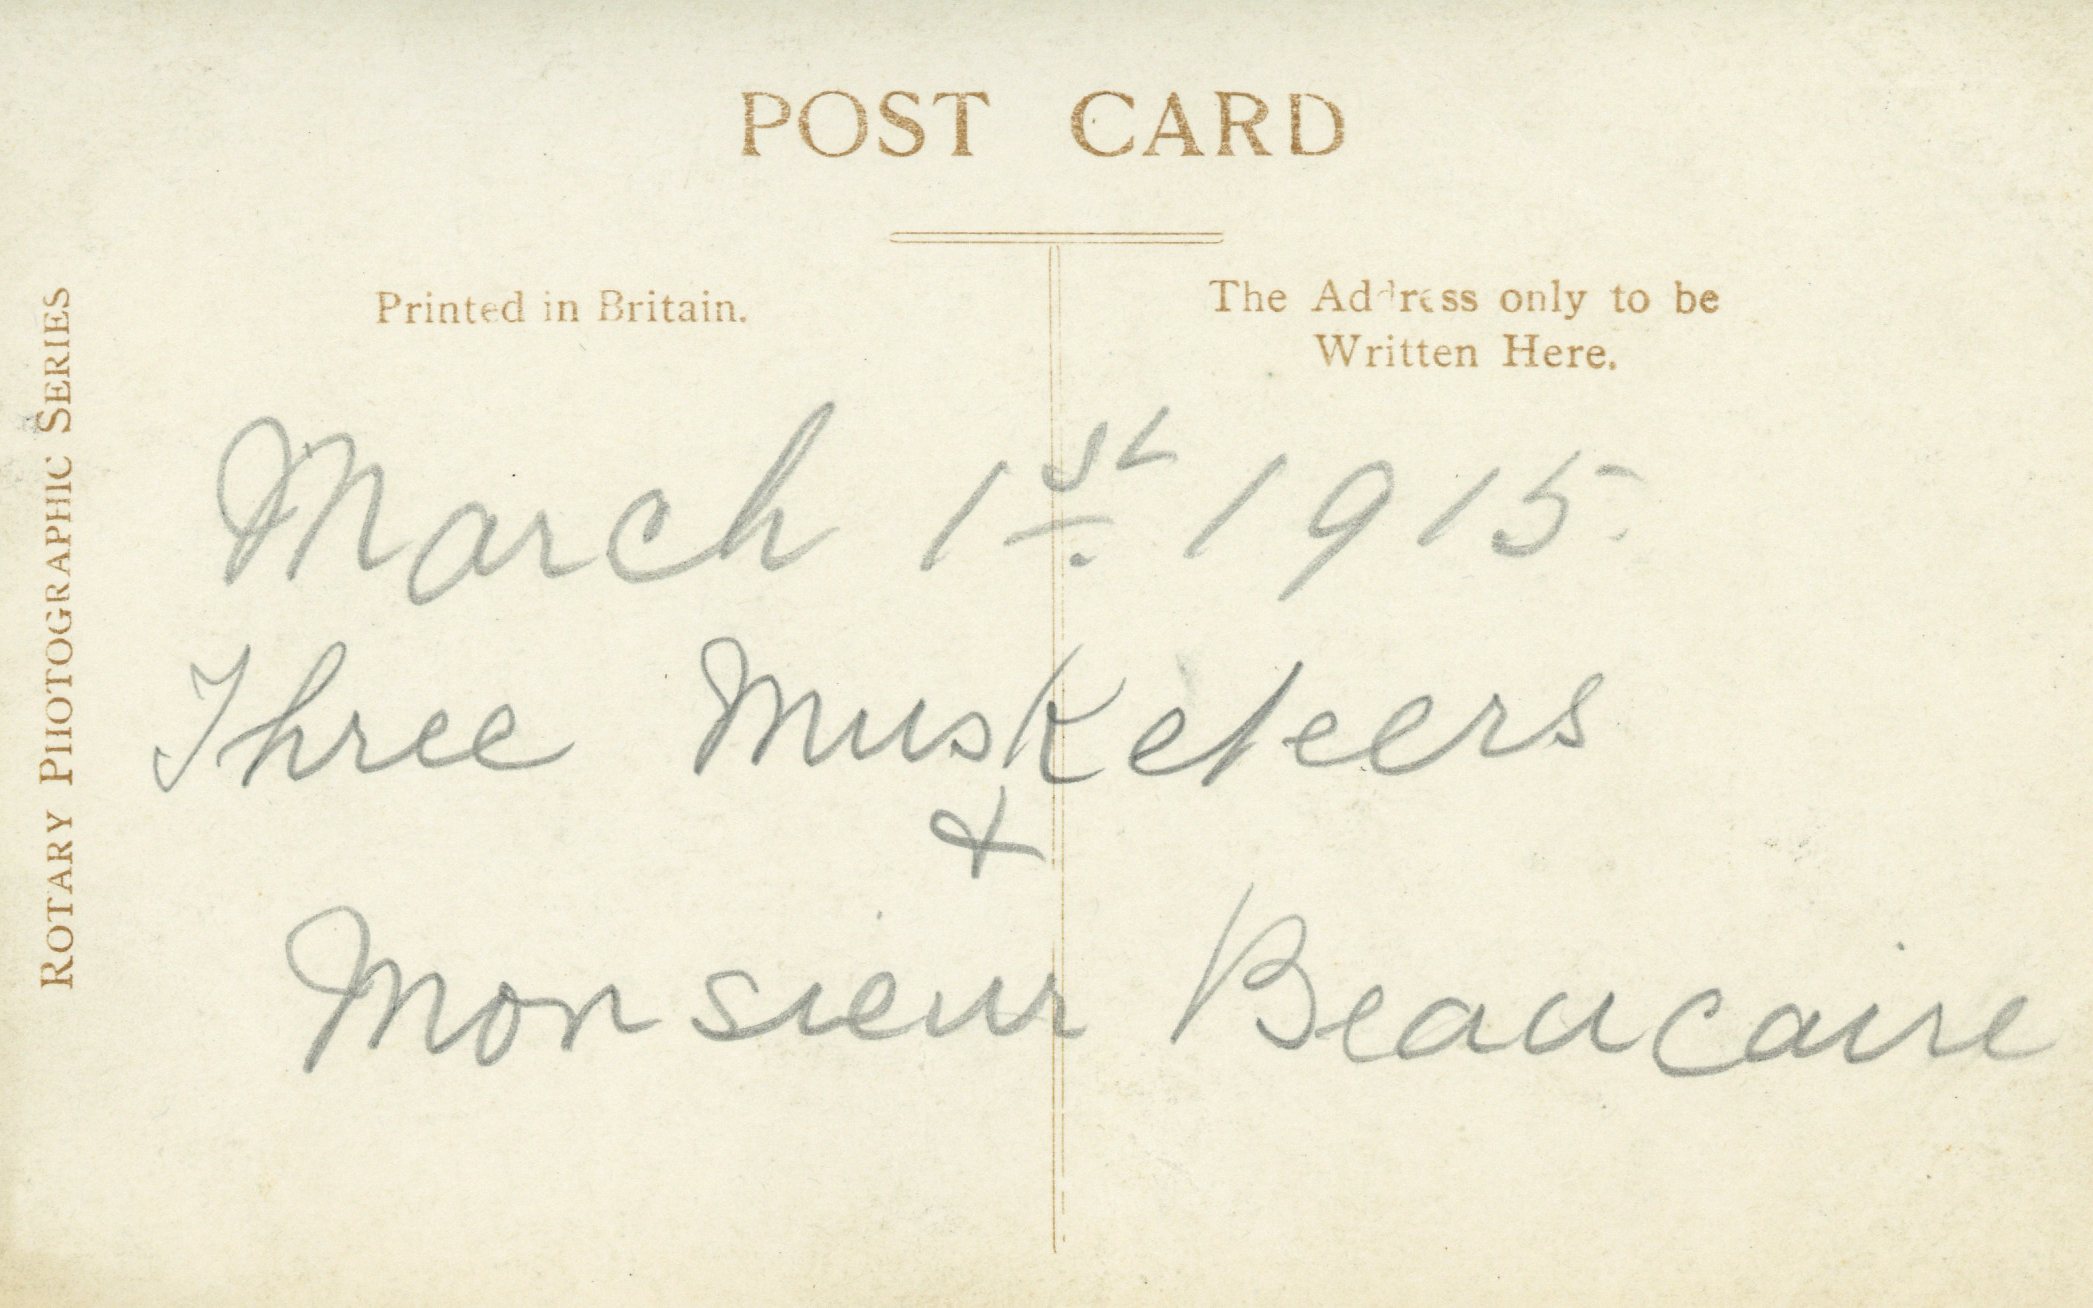 POST CARD
Printed in Britain.
The Address only to be
Written Here.
ROTARY PHOTOGRAPHIC SERIES
March 1st. 1915.
Three Musketeers
&
Monsieur Beaucaire